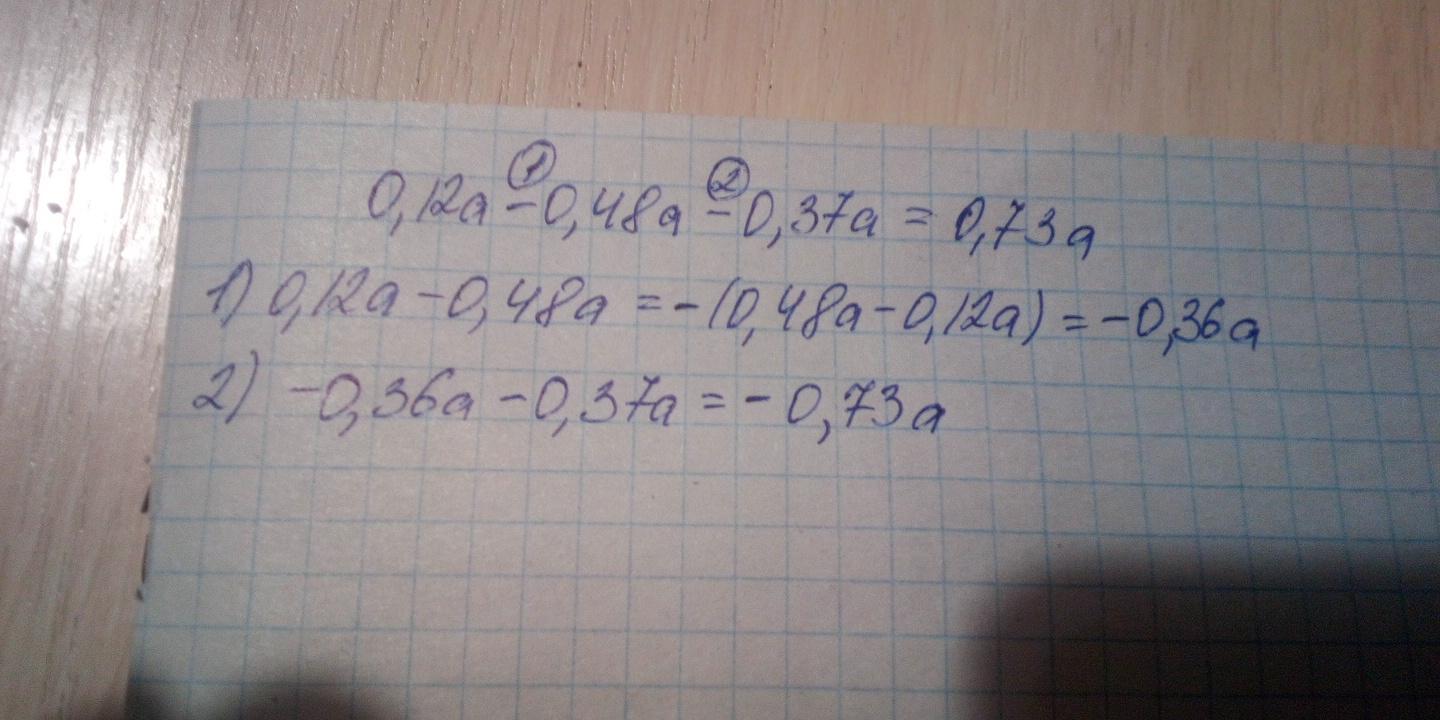 0,12a - 0,48a - 0,37a = 0,73a
1) 0,12a - 0,48a = -(0,48a - 0,12a) = -0,36a
2) -0,36a - 0,37a = -0,73a